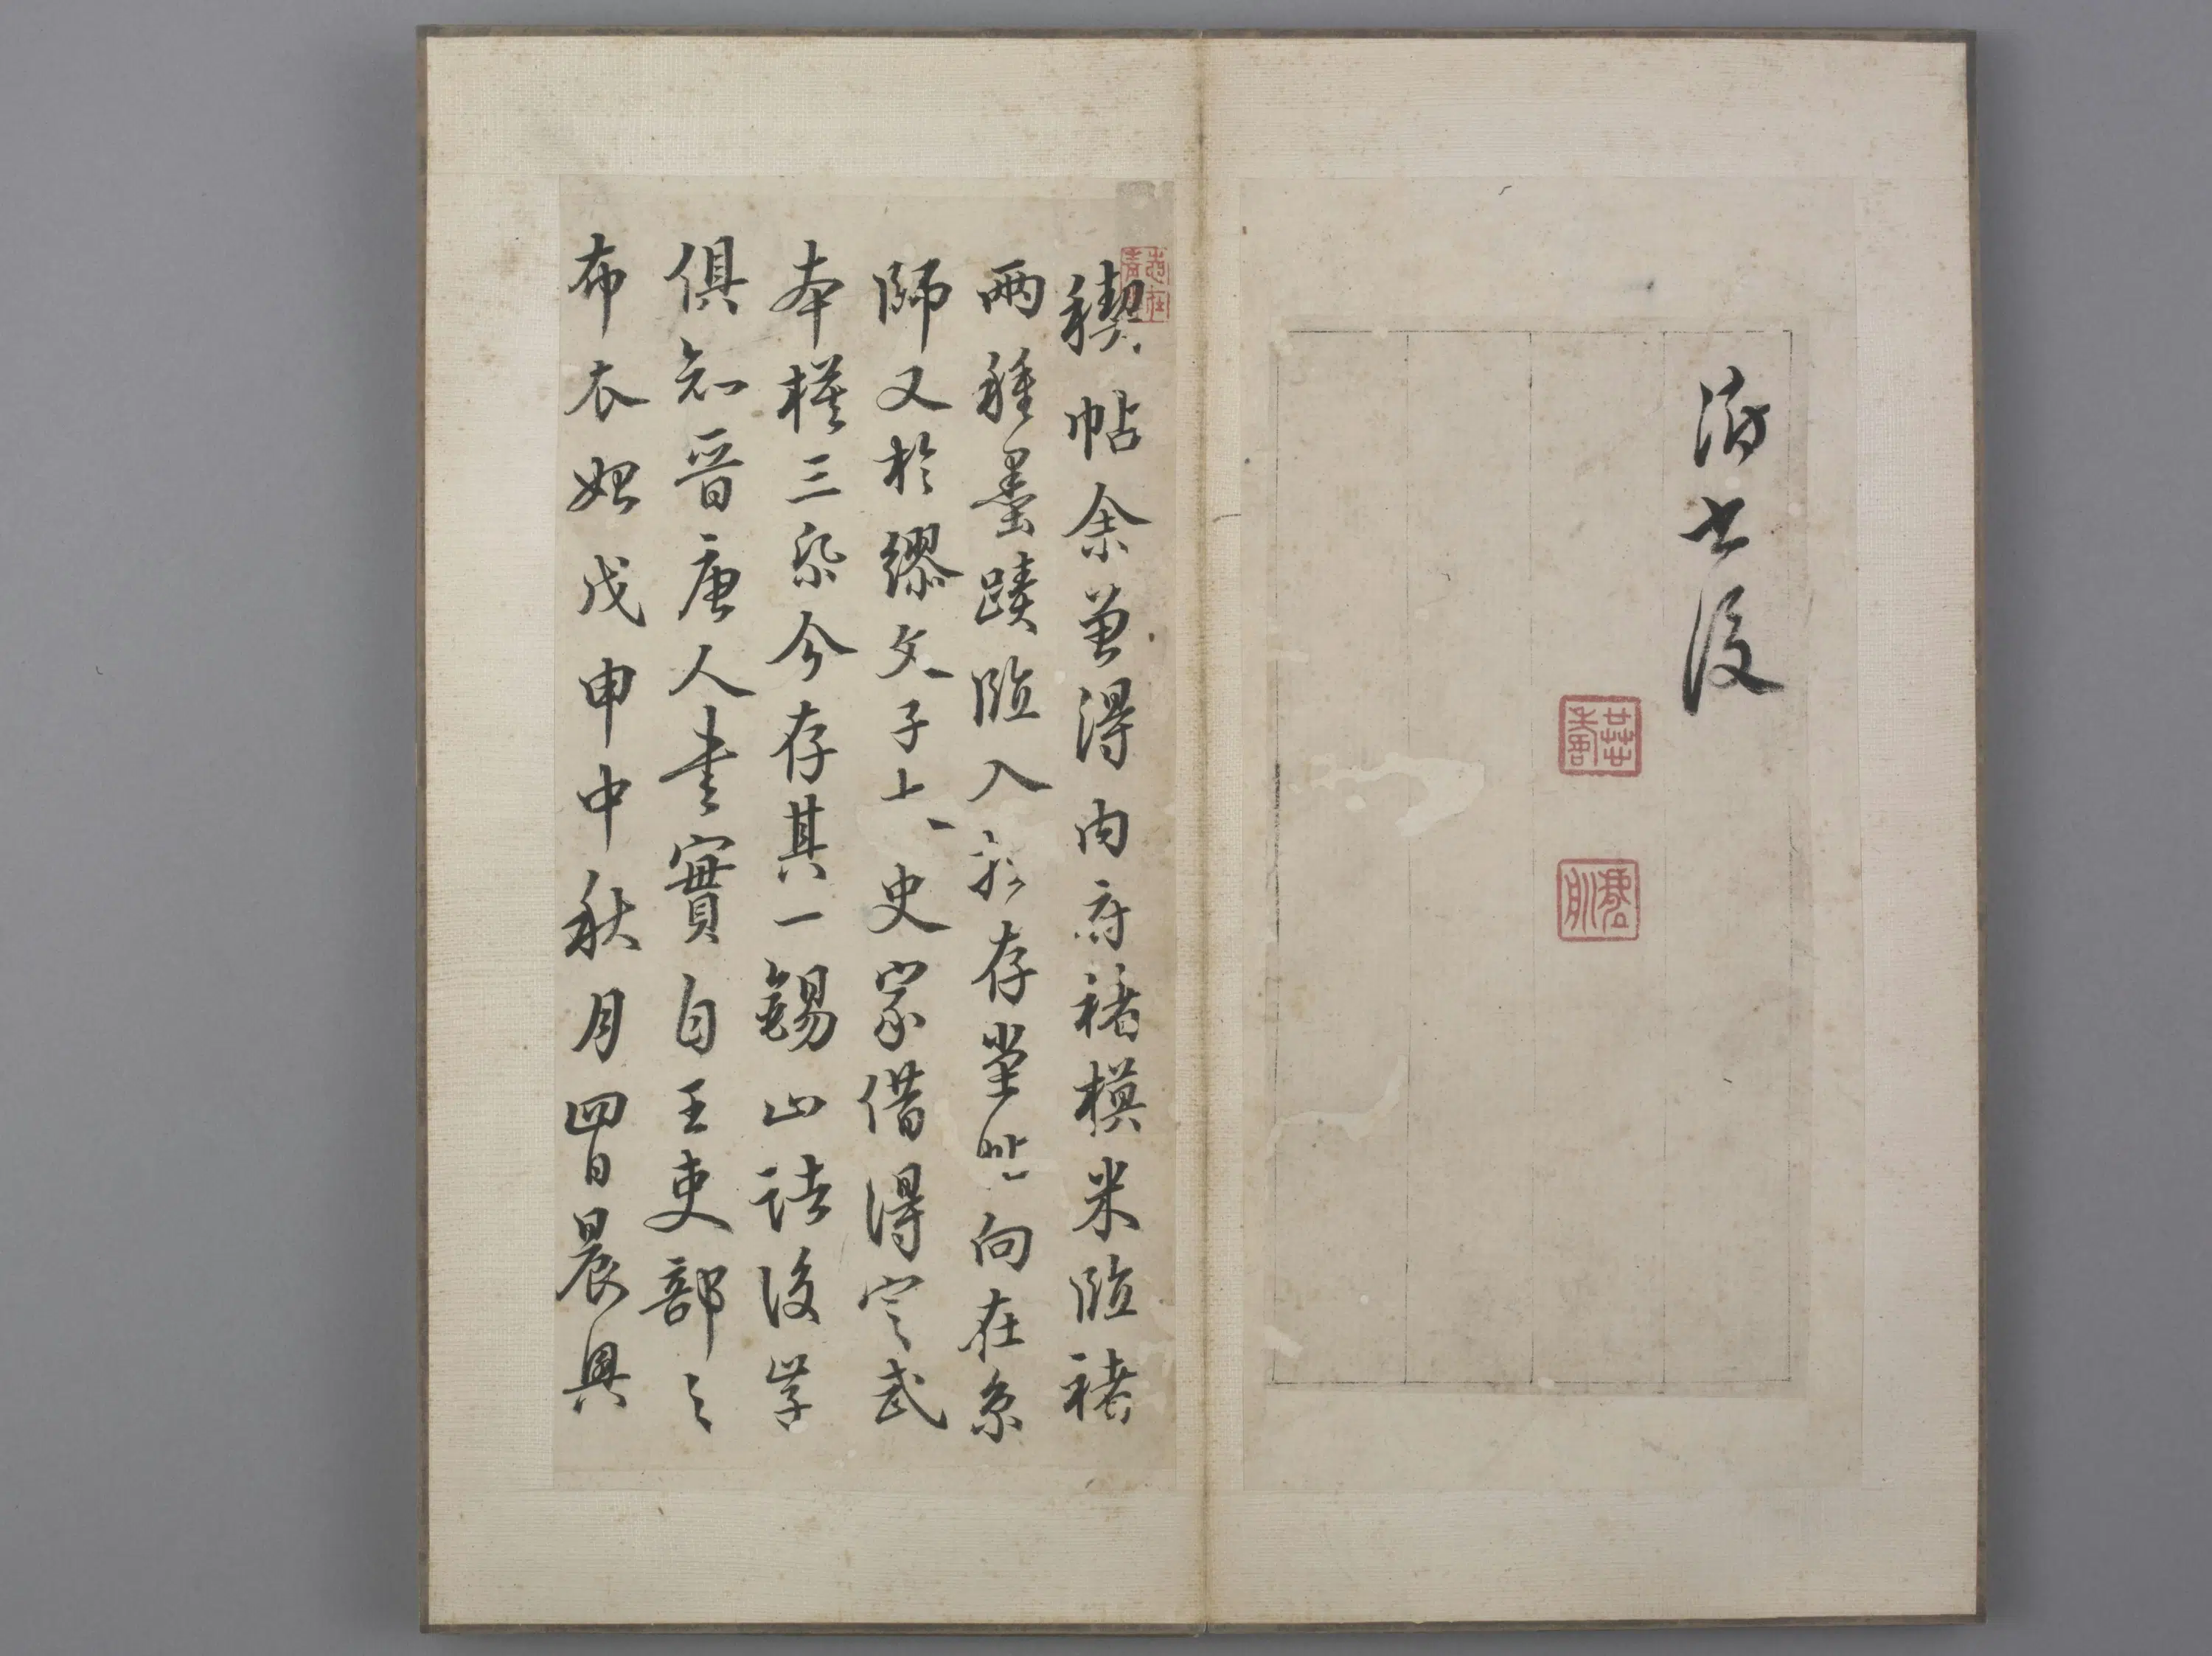 後
禊帖余曾得内府褚模米臨褚
兩種墨蹟臨入存堂帖向在京
師又於繆文子上史家借得定武
本模三今存其一錫山諸後學
俱知晉唐人書實自王吏部之
布衣始戊申中秋月四日晨興